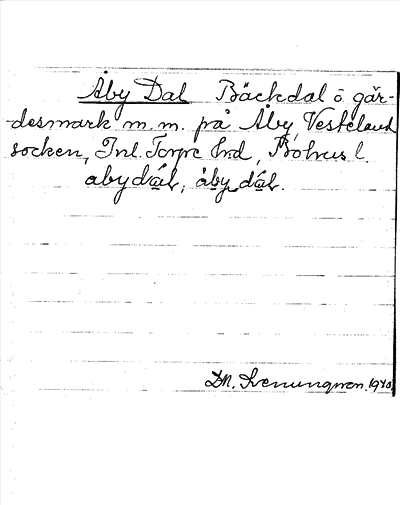 Åby Dal Bäckdal ö gär-
desmark m.m. på Åby Vesteland
socken, Inl. Torpe hrd, Bohus l.
abydal, åby dal.
1940